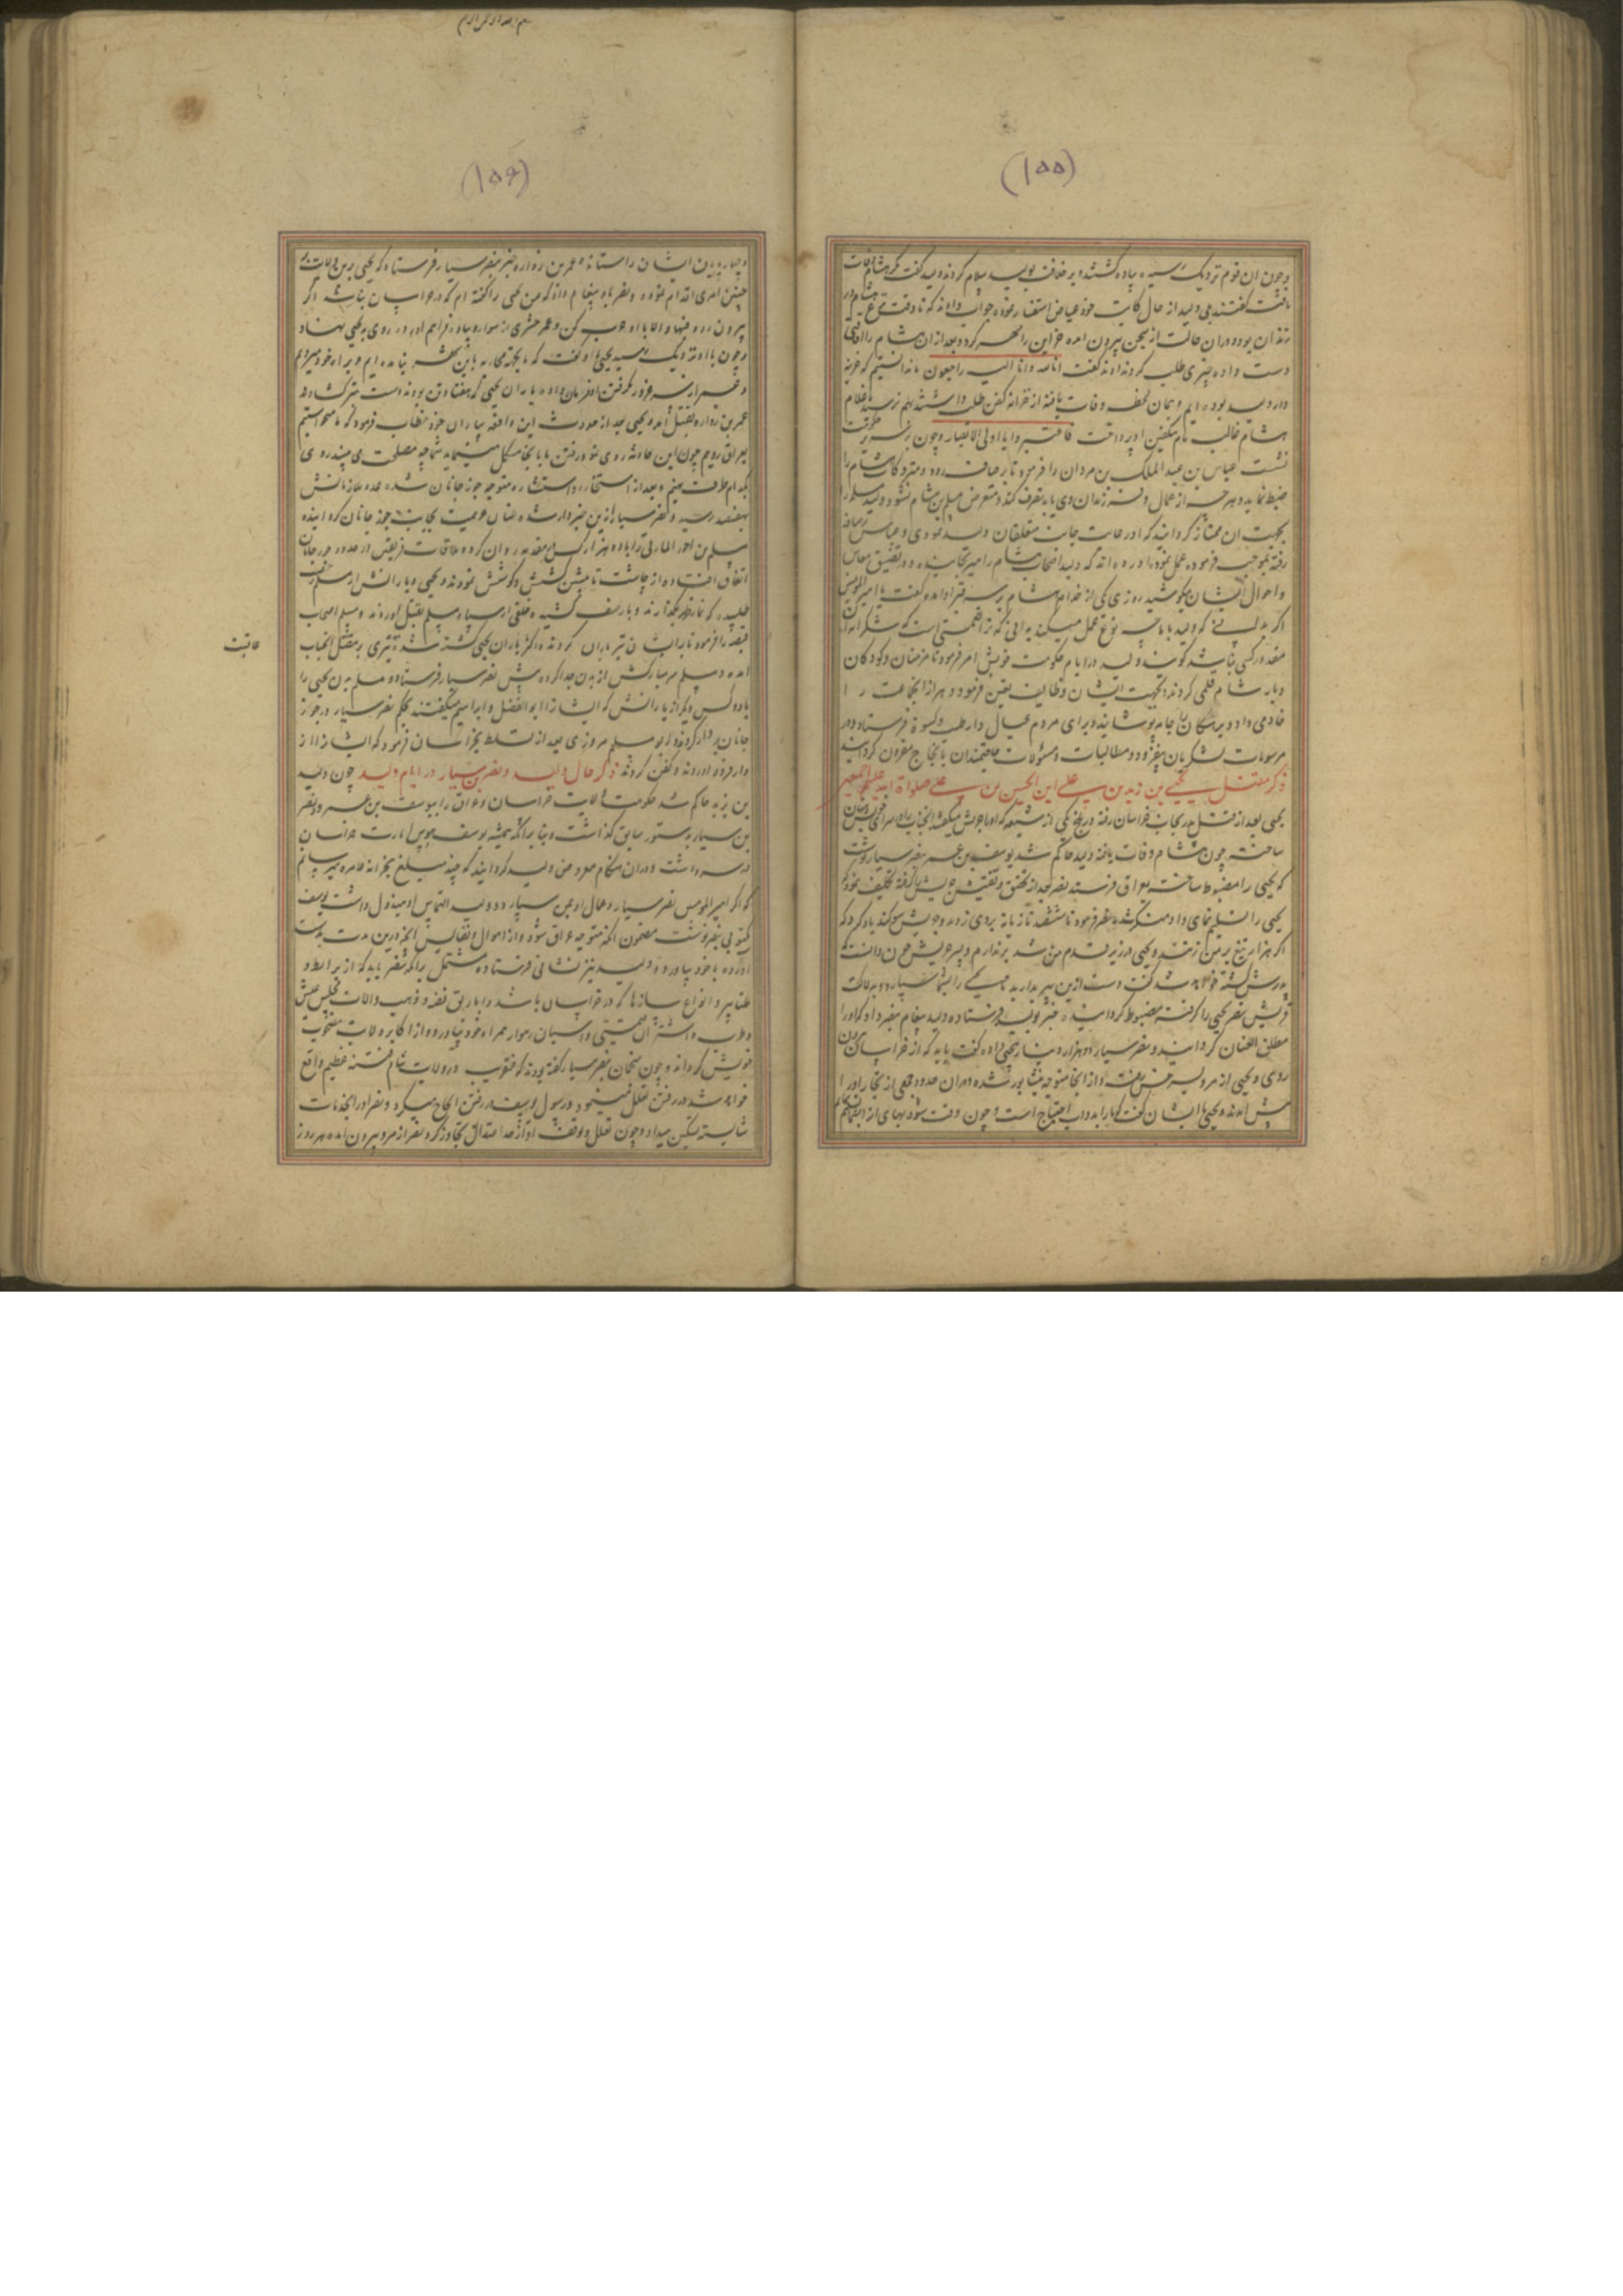 (۱۵۵)
و چون ان قوم نزدیک رسیدند پیاده گشتند و بر خلافت بولید سلام کردند ولید گفت مگر هشام وفات
یافت گفتند بلی ولید از حال کاتب خود عیاض استفسار نمود جواب دادند که تا وقت نزع هشام در
زندان بود و در ان حالت از سجن بیرون امده خزاین را مهر کرد و بعد از ان هشام را افاقتی
دست داده چیزی طلب کردند او ندادند گفت انا لله و انا الیه راجعون ما ندانستیم که خزینه
دار ولید بوده ایم و همان لحظه وفات یافته از خزانه کفن طلب داشتند بهم نرسید غلام
هشام غالب نام بتکفین او پرداخت فاعتبروا یا اولی الابصار و چون بر سریر حکومت
نشست عباس بن عبد الملک بن مروان را فرمود تا برصافه رود و متروکات هشام را
ضبط نماید و هر چه از عمال و فرزندان وی یابد تصرف کند و متعرض مسلم بن هشام نشود و ولید مسلمه را
بجهت ان ممتاز گردانید که او رعایت جانب متعلقان ولید نمودی و عباس برصافه
رفته بموجب فرموده عمل نمود اورده اند که ولید اصحاب هشام را میرنجانید و در تضییق معاش
و احوال ایشان میکوشید روزی یکی از خدام هشام بر سر قبر او امده گفت یا امیر المومنین
اگر بدانی که ولید با ما چه نوع عمل میکند بدانی که ترا نعمتی است که شکرانه ان
مقدور کسی نباشد گویند ولید در ایام حکومت خویش امر فرمود تا مزمنان و کودکان
دیار شام قلمی کردند و بجهت ایشان وظایف تعیین فرمود و هر از انجماعت را
خادمی داد و برهنگان را جامه پوشانید و برای مردم عیال دار طیب و کسوة فرستاد و در
مرسومات لشکریان بیفزود و مطالبات و مسئولات حاجتمندان بانجاح مقرون گردانید
ذکر مقتل یحیی بن زید بن علی ابن الحسین بن علی صلواة الله علیهم اجمعین
یحیی بعد از قتل پدر بجانب خراسان رفته در بلخ یکی از شیعه که او را حریش میگفتند انجناب را در سرای خویش پنهان
ساخت چون هشام وفات یافته ولید حاکم شد یوسف بن عمر بنصر سیار نوشت
که یحیی را مضبوط ساخته بعراق فرستد نصر بعد از تحقق و تفتیش حریش را گرفته تکلیف نمود که
یحیی را تسلیم نمای و او منکر شده نصر فرمود تا ششصد تازیانه بروی زدند و حریش سوگند یاد کرد که
اگر هزار تیغ بر من زنند و یحیی در زیر قدم من باشد بر ندارم و پسر حریش چون دانست که
پدرش کشته خواهد شد گفت دست ازین پیر بدارید تا من یحیی را بشما سپارم و بدلالت
قریش نصر یحیی را گرفته مضبوط گردانیده خبر بولید فرستاده ولید پیغام بنصر داد که او را
مطلق العنان گرداند و نصر سیار دو هزار دینار بیحیی داده گفت باید که از خراسان بیرون
روی و یحیی از مرو بسرخس رفت و از انجا متوجه نیشابور شده در ان حدود جمعی از تجار او را
پیش امدند و یحیی با ایشان گفت که ما را بدواب احتیاج است و چون وقت شود بهای از انقسام
(۱۵۶)
و چهارپایان ایشان را ستانده عمر بن زراره خبر بنصر سیار فرستاد که یحیی درین ولایت
چنین امری اقدام نموده و نصر باو پیغام داد که من یحیی را گفته ام که در خراسان نباشد اگر
بیرون رود فبها و الا با او حرب کن و عمر حشری از سوار و پیاده فراهم اورده روی بیحیی نهاد
و چون با او نزدیک رسید یحیی باو گفت که ما بجهة محاربه باین شهر نیامده ایم و براه خود میرویم
عمر بن زراره بقتل امد و یحیی بعد از حدوث این واقعه بیاران خود خطاب فرمود که ما میخواستیم
بعراق رویم چون این حادثه روی نمود رفتن ما بانجا مشکل مینماید شما چه مصلحت می بینید روی
بکدام طرف نهیم و بعد از استخاره و استشاره متوجه جوزجانان شده عدد ملازمانش
بهفتصد رسید و نصر سیار ازین خبردار شده عنان عزیمت بجانب جوزجانان گردانیده
مسلم بن احوز المازنی را با ده هزار کس مقدمه روان کرد و ملاقات فریقین در حدود جوزجانان
اتفاق افتاده از چاشت تا پیشین کشش و کوشش نمودند و یحیی و یارانش از مسلم رخصت
طلبیدند که نماز ظهر بگذارند و باز صف کشیده خلقی از سپاه مسلم بقتل اوردند و مسلم اصحاب
قبضه را فرمود تا بر ایشان تیرباران کردند و اکثر یاران یحیی کشته شده تیری بر مقتل انجناب
امده و مسلم سر مبارکش از بدن جدا کرده پیش نصر سیار فرستاد و مسلم بدن یحیی را
با دو کس دیگر از یارانش که ایشان را ابو الفضل و ابراهیم میگفتند بحکم نصر سیار در جوز
جانان بر دار کردند و ابو مسلم مروزی بعد از تسلط بخراسان فرمود که ایشان را از
دار فرود اوردند و دفن کردند ذکر حال ولید و نصر بن سیار در ایام ولید چون ولید
بن یزید حاکم شد حکومت ولایت خراسان و عراق را بیوسف بن عمر و نصر
بن سیار بدستور سابق گذاشت و بنابر انکه همیشه یوسف هوس امارت خراسان
در سر داشت در ان هنگام معروض ولید گردانید که چند مبلغ بخزانه عامره میرسانم
که اگر امیر المومنین نصر سیار و عمال او بمن سپارد و ولید التماس او مبذول داشت یوسف
مکتوبی بنصر نوشت مضمون انکه متوجه عراق شود و از اموال و نفایس انچه درین مدت بدست
اورده با خود بیاورد و ولید نیز نشانی فرستاده مشتمل بر انکه نصر باید که از برابط و
طنابیر و انواع سازها که در خراسان باشد و اباریق نقره و ذهب و الات مجلس عیش
و طرب و اشتران قیمتی و اسبان رهوار همراه خود بیاورد و از اکابر ولایت مصحوب
خویش گرداند و چون منجمان بنصر سیار گفته بودند که عنقریب در ولایت شام فتنه عظیم واقع
خواهد شد در رفتن تعلل مینمود و رسول یوسف در رفتن الحاح میکرد و نصر او را بخدمات
شایسته تسکین میداد و چون تعلل و توقف او از حد اعتدال تجاوز کرد نصر از مرو بیرون امده هر روز
عاقبت